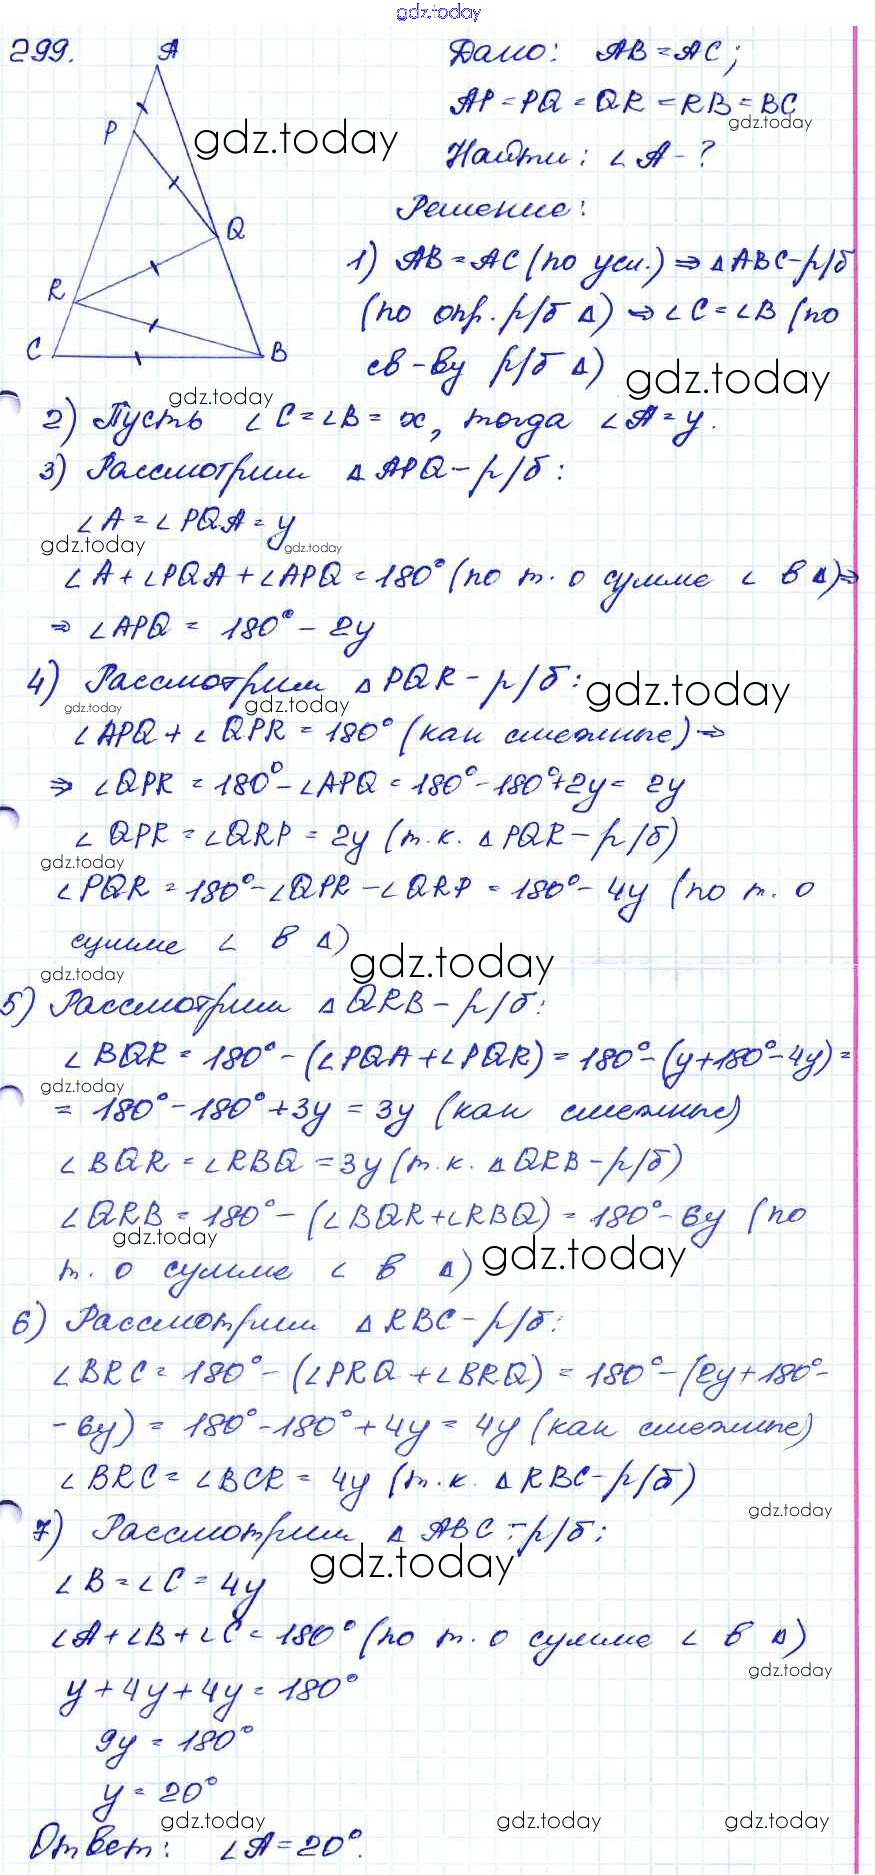 gdz.today
299.
A
P
Q
R
C
B
Дано: AB = AC;
AP = PQ = QR = RB = BC
gdz.today
gdz.today
Найти: ∠A - ?
Решение:
1) AB = AC (по усл.) ⇒ △ABC - р/б
(по опр. р/б △) ⇒ ∠C = ∠B (по
св-ву р/б △)
gdz.today
gdz.today
2) Пусть ∠C = ∠B = x, тогда ∠A = y.
3) Рассмотрим △APQ - р/б:
∠A = ∠PQA = y
gdz.today
gdz.today
∠A + ∠PQA + ∠APQ = 180° (по т. о сумме ∠ в △) ⇒
⇒ ∠APQ = 180° - 2y
4) Рассмотрим △PQR - р/б:
gdz.today
gdz.today
gdz.today
∠APQ + ∠QPR = 180° (как смежные) ⇒
⇒ ∠QPR = 180° - ∠APQ = 180° - 180° + 2y = 2y
∠QPR = ∠QRP = 2y (т.к. △PQR - р/б)
gdz.today
∠PQR = 180° - ∠QPR - ∠QRP = 180° - 4y (по т. о
сумме ∠ в △)
gdz.today
gdz.today
5) Рассмотрим △QRB - р/б:
∠BQR = 180° - (∠PQA + ∠PQR) = 180° - (y + 180° - 4y) =
gdz.today
= 180° - 180° + 3y = 3y (как смежные)
∠BQR = ∠RBQ = 3y (т.к. △QRB - р/б)
∠QRB = 180° - (∠BQR + ∠RBQ) = 180° - 6y (по
gdz.today
т. о сумме ∠ в △)
gdz.today
6) Рассмотрим △RBC - р/б:
∠BRC = 180° - (∠PRQ + ∠BRQ) = 180° - (2y + 180° -
- 6y) = 180° - 180° + 4y = 4y (как смежные)
∠BRC = ∠BCR = 4y (т.к. △RBC - р/б)
gdz.today
7) Рассмотрим △ABC - р/б:
gdz.today
∠B = ∠C = 4y
∠A + ∠B + ∠C = 180° (по т. о сумме ∠ в △)
gdz.today
y + 4y + 4y = 180°
9y = 180°
y = 20°
gdz.today
gdz.today
gdz.today
Ответ: ∠A = 20°.